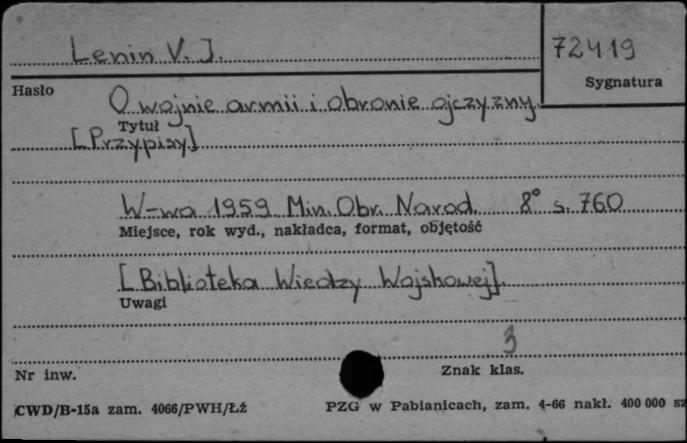 Lenin V. I.
72419
Sygnatura
Hasło
O wojnie armii i obronie ojczyzny.
Tytuł
[Przypisy]
W-wa 1959 Min. Obr. Narod. 8° s. 760
Miejsce, rok wyd., nakładca, format, objętość
[Biblioteka Wiedzy Wojskowej].
Uwagi
3
Nr inw.
Znak klas.
CWD/B-15a zam. 4066/PWH/Łź
PZG w Pabianicach, zam. 4-66 nakł. 400 000 sz